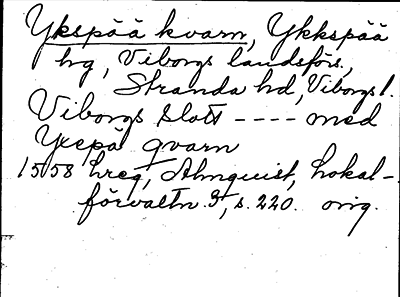 Ykspää kvarn, Ykkspää
hg, Viborgs landsförs.,
Stranda hd, Viborgs l.
Viborgs slott ---- med
Yxepä qvarn
1558 hreg, Almquist, Lokal-
förvaltn. 3, s. 220. orig.